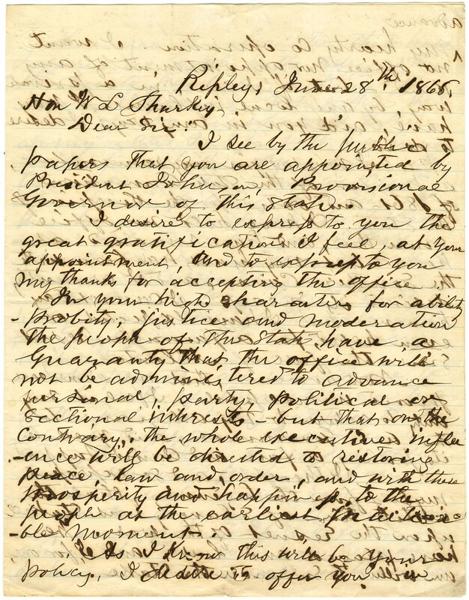 Ripley, June 28th 1865,
Hon W L Sharkey,
Dear Sir.
I see by the public
papers that you are appointed by
President Johnson, Provisional
Governor of this State.
I desire to express to you the
great gratification I feel, at your
appointment, and to express to you
my thanks for accepting the office
In your high character for ability
-probity, justice and moderation
the people of the State have, a
Guaranty that the office will
not be adminis tered to advance
personal, party, political or
Sectional interests - but that on the
Contrary, the whole executive influ
-ence will be directed to restoring
peace, law and order, and with these
prosperity and happiness, to the
people at the earliest practica
-ble moment.
As I know this will be your
policy, I desire to offer you